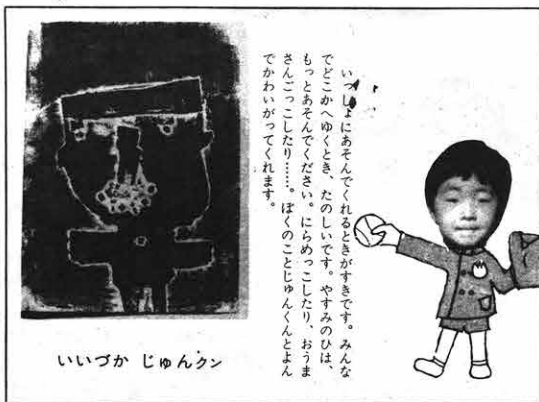 いっしょにあそんでくれるときがすきです。みんな
でどこかへゆくとき、たのしいです。やすみのひは、
もっとあそんでください。にらめっこしたり、おうま
さんごっこしたり……。ぼくのことじゅんくんとよん
でかわいがってくれます。
いいづか じゅんクン